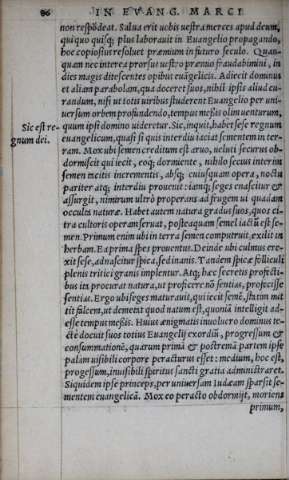 86 IN EVANG. MARCI
non respõdeat. Salua erit uobis uestra merces apud deum,
qui quo quisq; plus laborauit in Euangelio propagando,
hoc copiosius resoluet præmium in futuro seculo. Quan-
quam nec interea prorsus uestro præmio fraudabimini, in
dies magis ditescentes opibus euãgelicis. Adiecit dominus
et aliam parabolam, qua doceret suos, nihil ipsis aliud cu-
randum, nisi ut totis uiribus studerent Euangelio per uni-
uersum orbem profundendo, tempus meßis olim uenturum,
Sic est re-
gnum dei.
quum ipsi domino uideretur. Sic, inquit, habet sese regnum
euangelicum, quasi si quis interdiu iaciat sementem in ter-
ram. Mox ubi semen creditum est aruo, uelut securus ob-
dormiscit qui iecit, eoq; dormiente, nihilo secius interim
semen uscitis incrementis, absq; cuiusquam opera, noctu
pariter atq; interdiu prouenit: iamq; seges enascitur et
assurgit, nimirum ultrò properans ad frugem ui quadam
occulta naturæ. Habet autem natura gradus suos, quos ci-
tra cultoris operam seruat, posteaquam semel iacta est se-
men. Primum enim ubi in terra semen computruit, exilit in
herbam. Ea prima spes prouentus. Deinde ubi culmus ere-
xit sese, adnascitur spica, sed inanis. Tandem spicæ folliculi
plenis tritici granis implentur. Atq; hæc secretis profecti-
bus ita procurat natura, ut proficere nõ sentias, profecisse
sentias. Ergo ubi seges maturauit, qui iecit semẽ, statim mit
tit falcem, ut demetat quod natum est, quoniã intelligit ad-
esse tempus meßis. Huius ænigmatis inuolucro dominus te-
ctè docuit suos totius Euangelij exordiũ, progressum et
consummationẽ, quarum primã et postremã partem ipse
palam uisibili corpore peracturus esset: medium, hoc est,
progressum, inuisibili spiritus sancti gratia administraret.
Siquidem ipse princeps, per uniuersam Iudæam sparsit se-
mentem euangelicã. Mox eo peracto obdormijt, moriens
primum,